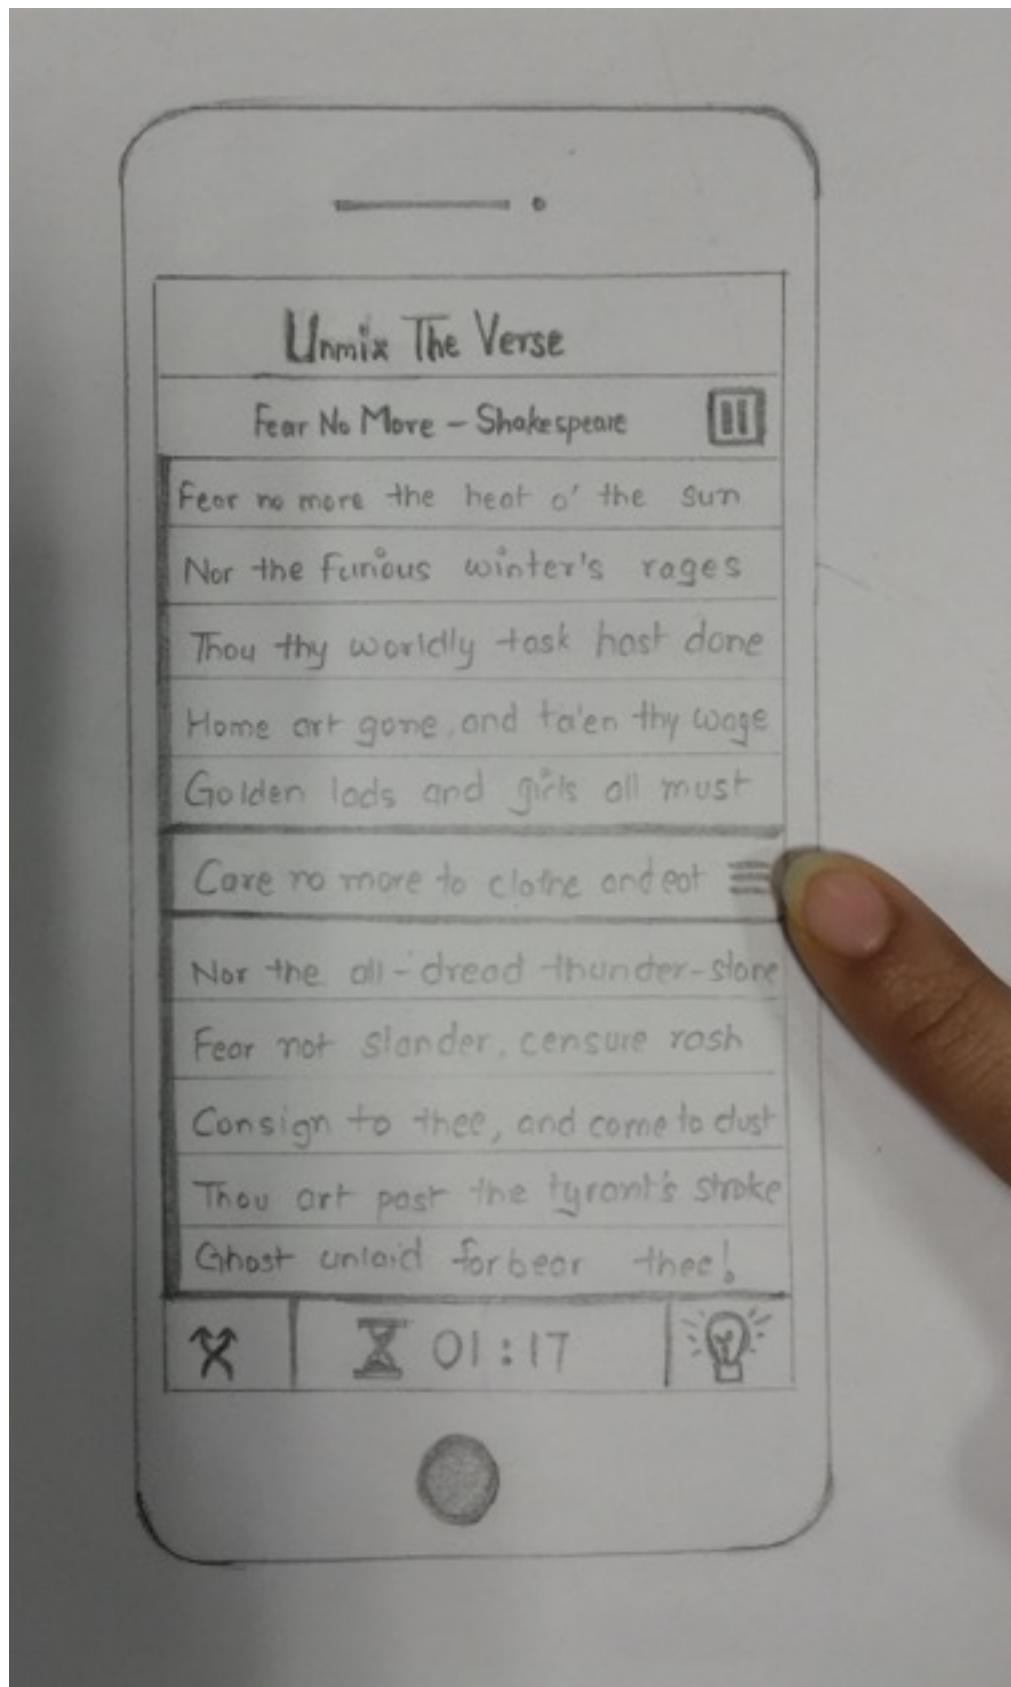 Unmix The Verse
Fear No More – Shakespeare
Fear no more the heat o' the sun
Nor the furious winter's rages
Thou thy worldly task hast done
Home art gone, and ta'en thy wage
Golden lads and girls all must
Care no more to clothe and eat
Nor the all-dread thunder-stone
Fear not slander, censure rash
Consign to thee, and come to dust
Thou art past the tyrant's stroke
Ghost unlaid forbear thee!
01:17